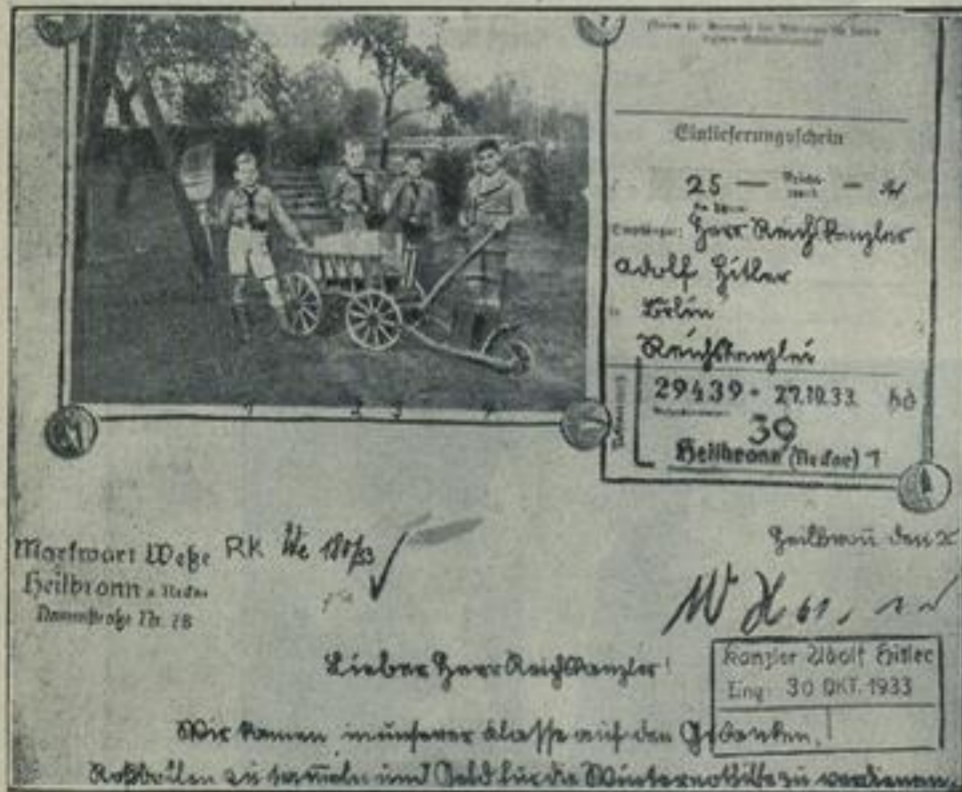 Einlieferungsschein
25 — Reichs mark — Pf
Empfänger: Herr Reichskanzler
Adolf Hitler
in Berlin
Reichskanzlei
29439 - 27.10.33. hd
39
Heilbronn (Neckar) 1
1 2 3 4
Markwart Weße RK We 180/33
Heilbronn a. Neckar
Dammstraße Nr. 28
Heilbronn den
Lieber Herr Reichskanzler!
Kanzler Adolf Hitler
Eing. 30 OKT. 1933
Wir kamen in unserer Klasse auf den Gedanken,
Roßbollen zu sammeln und Geld für die Winternothilfe zu verdienen,